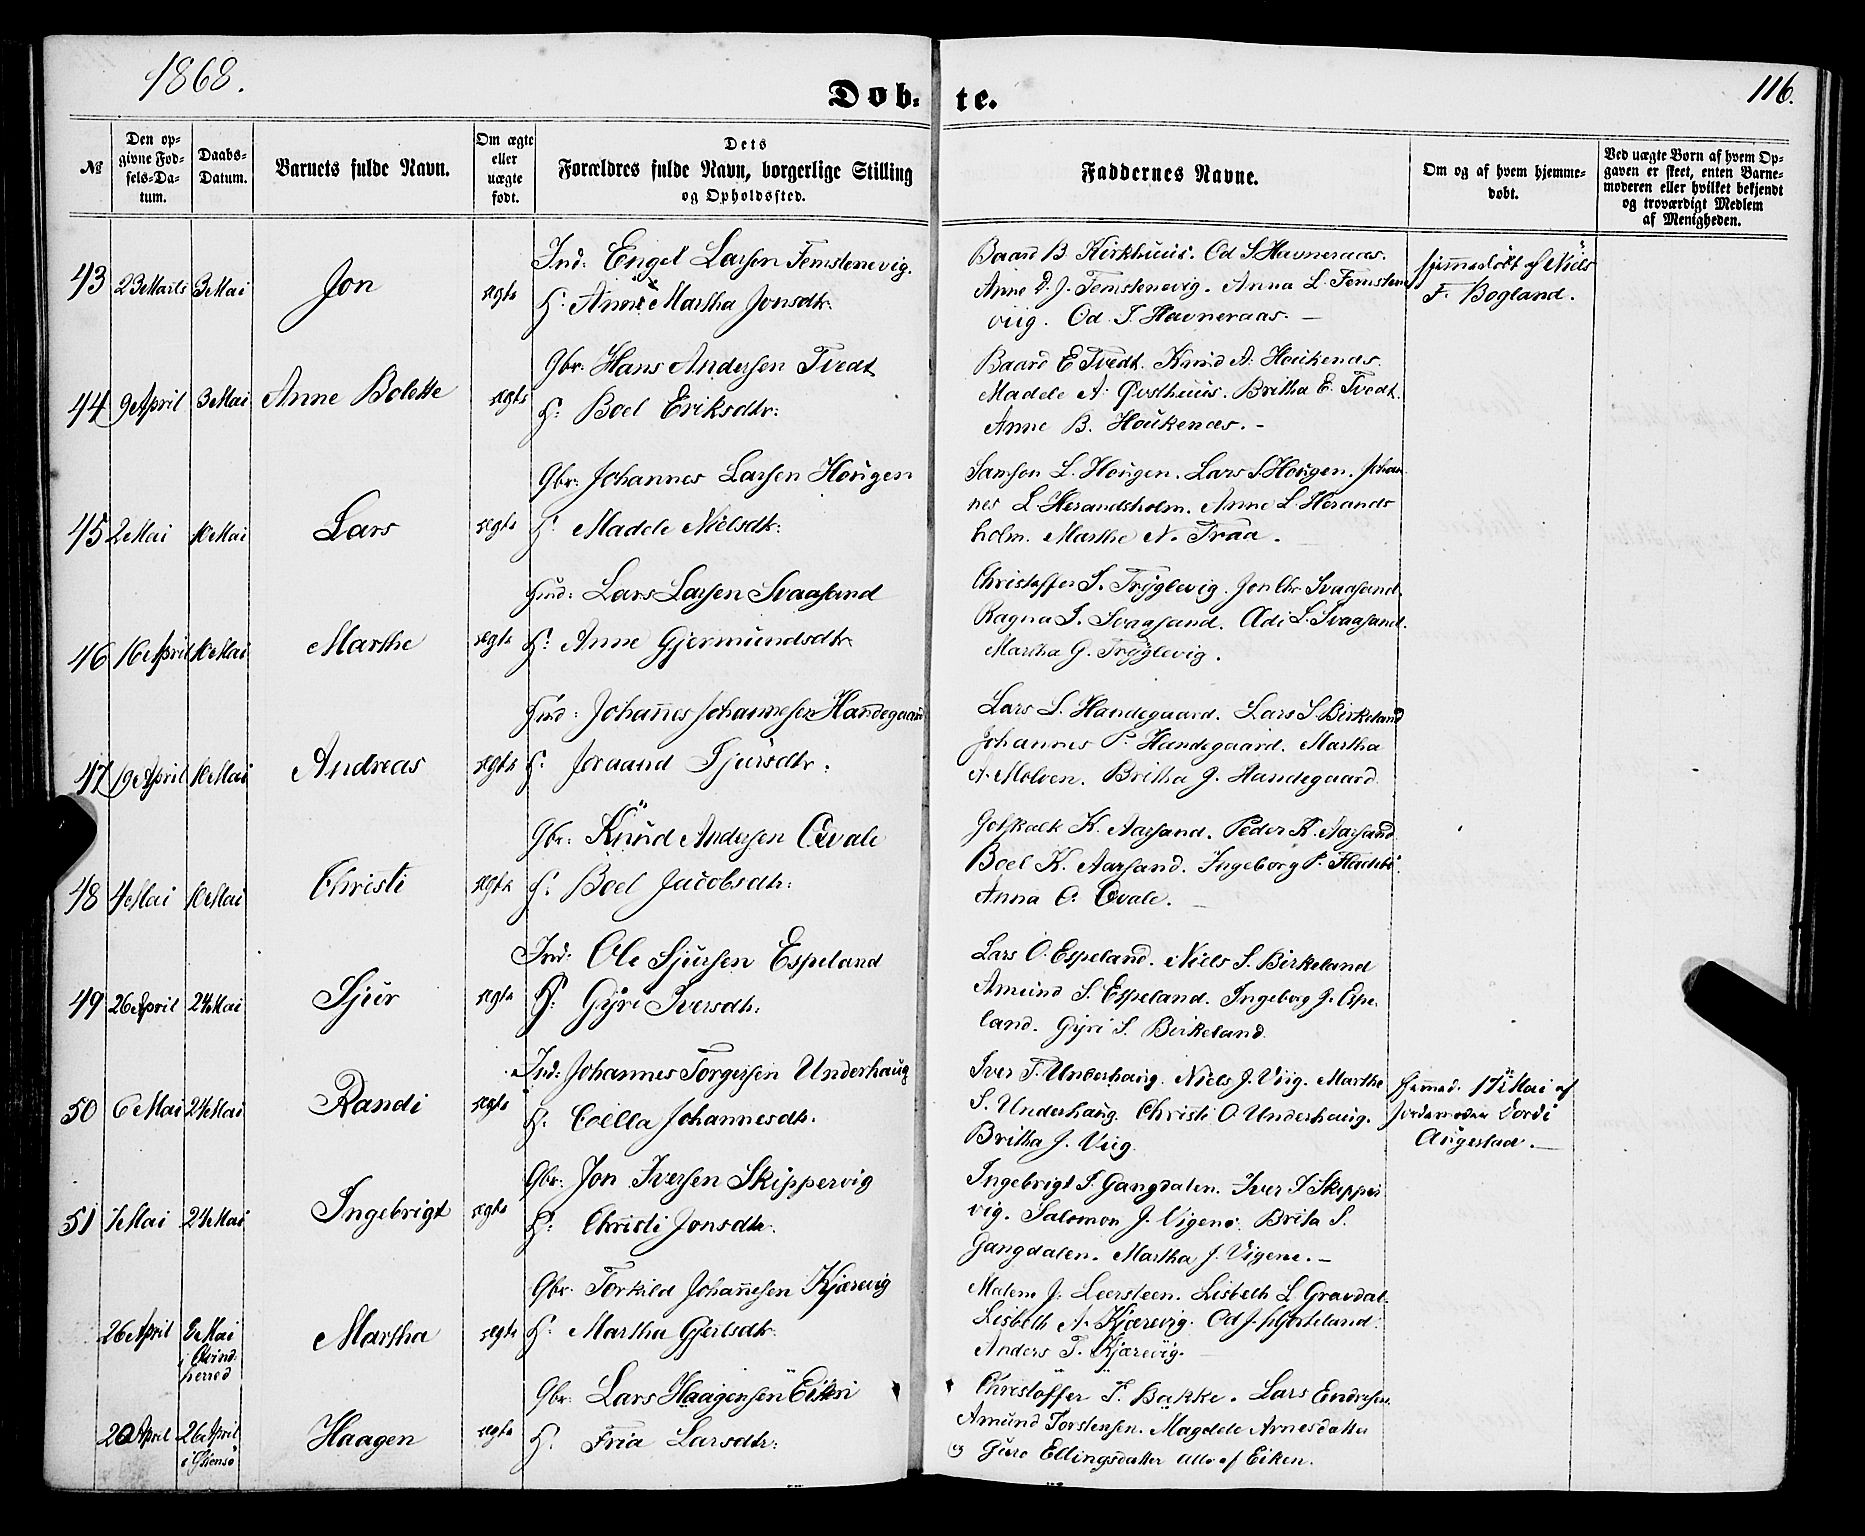 1868.
Døb-te.
116.
№
Den op-
givne Fød-
sels-Da-
tum.
Daabs-
Datum.
Barnets fulde Navn.
Om ægte
eller
uægte
født.
Dets
Forældres fulde Navn, borgerlige Stilling
og Opholdssted.
Faddernes Navne.
Om og af hvem hjemme-
døbt.
Ved uægte Børn af hvem Op-
gaven er skeet, enten Barne-
moderen eller hvilket bekjendt
og troværdigt Medlem
af Menigheden.
43 23de Marts 3de Mai Jon ægte
Ind: Engel Larsen Femstenevig.
H: Anne Martha Jonsdtr.
Baard B. Kirkhuus. Od S Havneraas.
Anne D. J. Femstenevig. Anna L. Femstene
viig. Od. J. Havneraas. —
hjemmedøbt af Niels
F. Bogland.
44 9de April 3de Mai Anne Bolette ægte
Gbr: Hans Andersen Tvedt
H: Boel Eriksdtr:
Baard E Tvedt. Knud A. Houkenæs.
Madele A. Østhuus. Britha E. Tvedt.
Anne B. Houkenæs. –
45 2de Mai 10de Mai Lars ægte
Gbr: Johannes Larsen Hougen
H: Madele Nielsdtr:
Samson L. Hougen. Lars S Hougen. Johan
nes L Herandsholm. Anne L Herands
holm. Marthe N. Traa.
46 16de April 10de Mai Marthe ægte
Husd: Lars Larsen Svaasand
H: Anne Gjermundsdtr
Christoffer S. Tryglevig. Jon Chr Svaasand.
Ragna J. Svaasand. Adi S. Svaasand.
Martha G. Tryglevig.
47 19de April 10de Mai Andreas ægte
Husd: Johannes Johannesen Handegaard
H: Joraand Sjursdtr.
Lars S. Handegaard. Lars S Birkeland
Johannes P. Handegaard. Martha
A. Molven. Britha J. Handegaard
48 4de Mai 10de Mai Christi ægte
Gbr: Knud Andersen Qvale
H: Boel Jacobsdtr:
Gotskalk K. Aarsand. Peder K. Aarsand
Boel K. Aarsand. Ingeborg P. Flatebø
Anna O. Qvale. —
49 26de April 24de Mai Sjur ægte
Ind: Ole Sjursen Espeland
H: Gyri Iversdtr.
Lars O. Espeland. Niels S. Birkeland
Amund S. Espeland. Ingeborg J. Espe-
land. Gyri S. Birkeland
50 6de Mai 24de Mai Randi ægte
Ind: Johannes Torgersen Underhaug
H: Coella Johannesdtr.
Iver T. Underhaug. Niels J. Viig. Marthe
S. Underhaug. Christi O. Underhaug.
Britha J. Viig.
hjemmed. 17de Mai af
Jordemoder Tordi
Augestad. —
51 7de Mai 24de Mai Ingebrigt ægte
Gbr: Jon Iversen Skippervig
H: Christi Jonsdtr.
Ingebrigt S. Gangdalen. Iver I Skipper
vig. Salomon J. Vigene. Brita S.
Gangdalen. Martha J. Vigene. –
26de April 8de Mai
i Qvind-
herred Martha ægte
Gbr: Torkild Johannesen Kjærevig
H: Martha Gjertsdtr.
Malene J. Leersteen. Lisbeth L Gravdal.
Lisbeth A. Kjærevig. Od J. Hjorteland.
Anders T. Kjærevig.
20de April 26de April
Haagen ægte
Gbr: Lars Haagensen Eiken
H: Fria Larsdtr:
Christoffer T. Bakke. Lars Endresen.
Amund Torstensen. Magdele Arnesdatter
og Guro Ellingsdatter alle af Eiken.